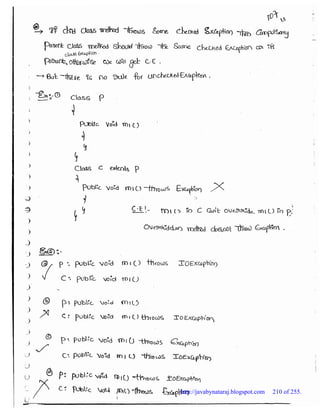 107
→ If child class method throws Some checked Exception then Compulsary
Parent class method should throw the Same checked Exception or its
class Exception
Parent, otherwise we will get C.E.
→ But there is no rule for uncheckedException.
Ex:-① class P
{
public void m1()
{
}
}
class C extends P
{
public void m1() throws Exception ✗
{
}
}
C.E!:- m1() in C Can't override m1() in P;
Overridden method doesnot throw Exception.
Ex②:-
ⓐ P : public void m1() throws IOException
✓ C : public void m1()
ⓑ P : public void m1()
✗ C : public void m1() throws IOException
ⓒ P : public void m1() throws Exception
✓ C : public void m1() throws IOException
ⓓ P : public void m1() throws IOException
✗ C : public void m1() throws Exception
http://javabynataraj.blogspot.com 210 of 255.